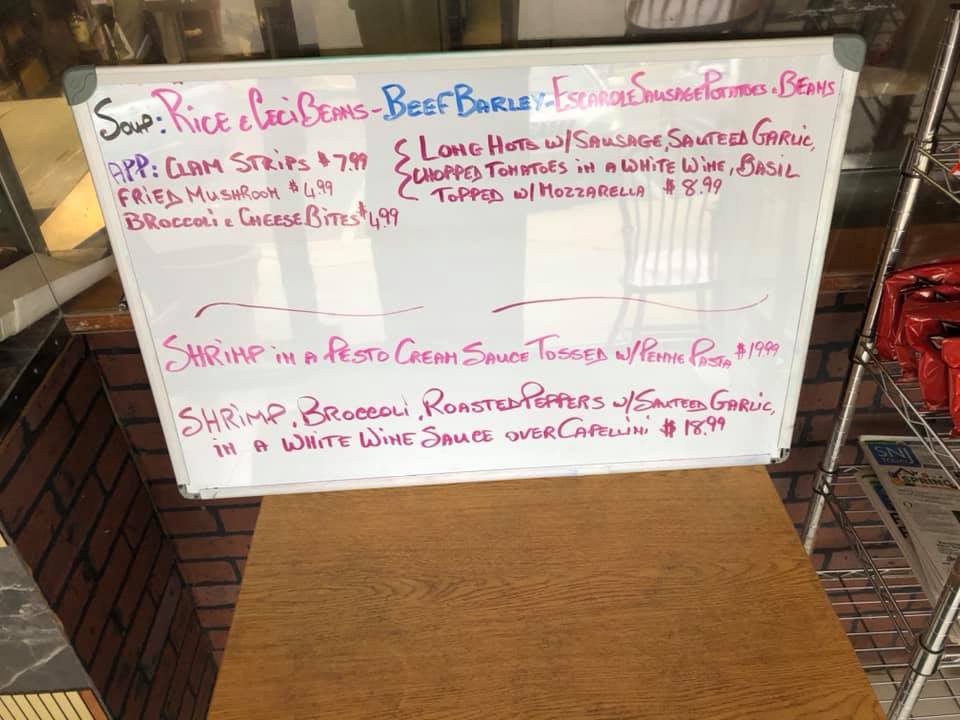 Soup: Rice & Ceci Beans - Beef Barley - Escarole Sausage Potatoes & Beans
App: Clam Strips $7.99
Fried Mushroom $4.99
Broccoli & Cheese Bites $4.99
Long Hots w/ Sausage, Sauteed Garlic,
Chopped Tomatoes in a White Wine, Basil
Topped w/ Mozzarella $8.99
Shrimp in a Pesto Cream Sauce Tossed w/ Penne Pasta $19.99
Shrimp, Broccoli, Roasted Peppers w/ Sauteed Garlic,
in a White Wine Sauce over Capellini $18.99
SNJ
SPRING